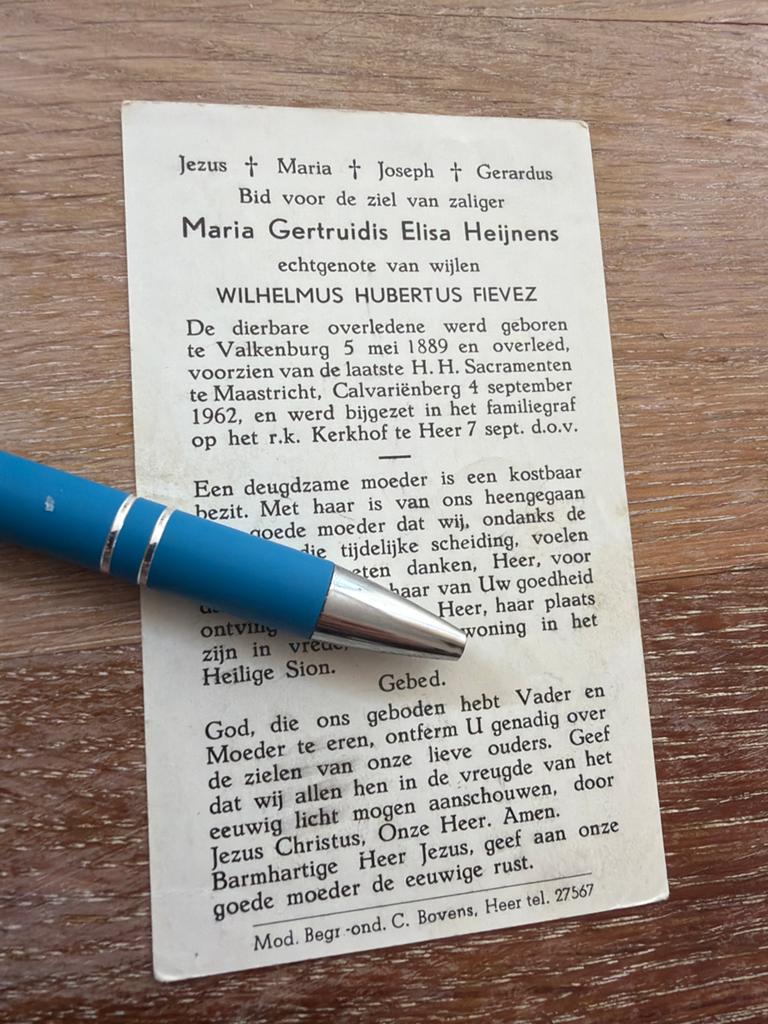 Jezus † Maria † Joseph † Gerardus
Bid voor de ziel van zaliger
Maria Gertruidis Elisa Heijnens
echtgenote van wijlen
WILHELMUS HUBERTUS FIEVEZ
De dierbare overledene werd geboren
te Valkenburg 5 mei 1889 en overleed,
voorzien van de laatste H. H. Sacramenten
te Maastricht, Calvariënberg 4 september
1962, en werd bijgezet in het familiegraf
op het r.k. Kerkhof te Heer 7 sept. d.o.v.
Een deugdzame moeder is een kostbaar
bezit. Met haar is van ons heengegaan
goede moeder dat wij, ondanks de
die tijdelijke scheiding, voelen
danken, Heer, voor
haar van Uw goedheid
Heer, haar plaats
woning in het
zijn in
Heilige Sion.
Gebed.
God, die ons geboden hebt Vader en
Moeder te eren, ontferm U genadig over
de zielen van onze lieve ouders. Geef
dat wij allen hen in de vreugde van het
eeuwig licht mogen aanschouwen, door
Jezus Christus, Onze Heer. Amen.
Barmhartige Heer Jezus, geef aan onze
goede moeder de eeuwige rust.
Mod. Begr.-ond. C. Bovens, Heer tel. 27567